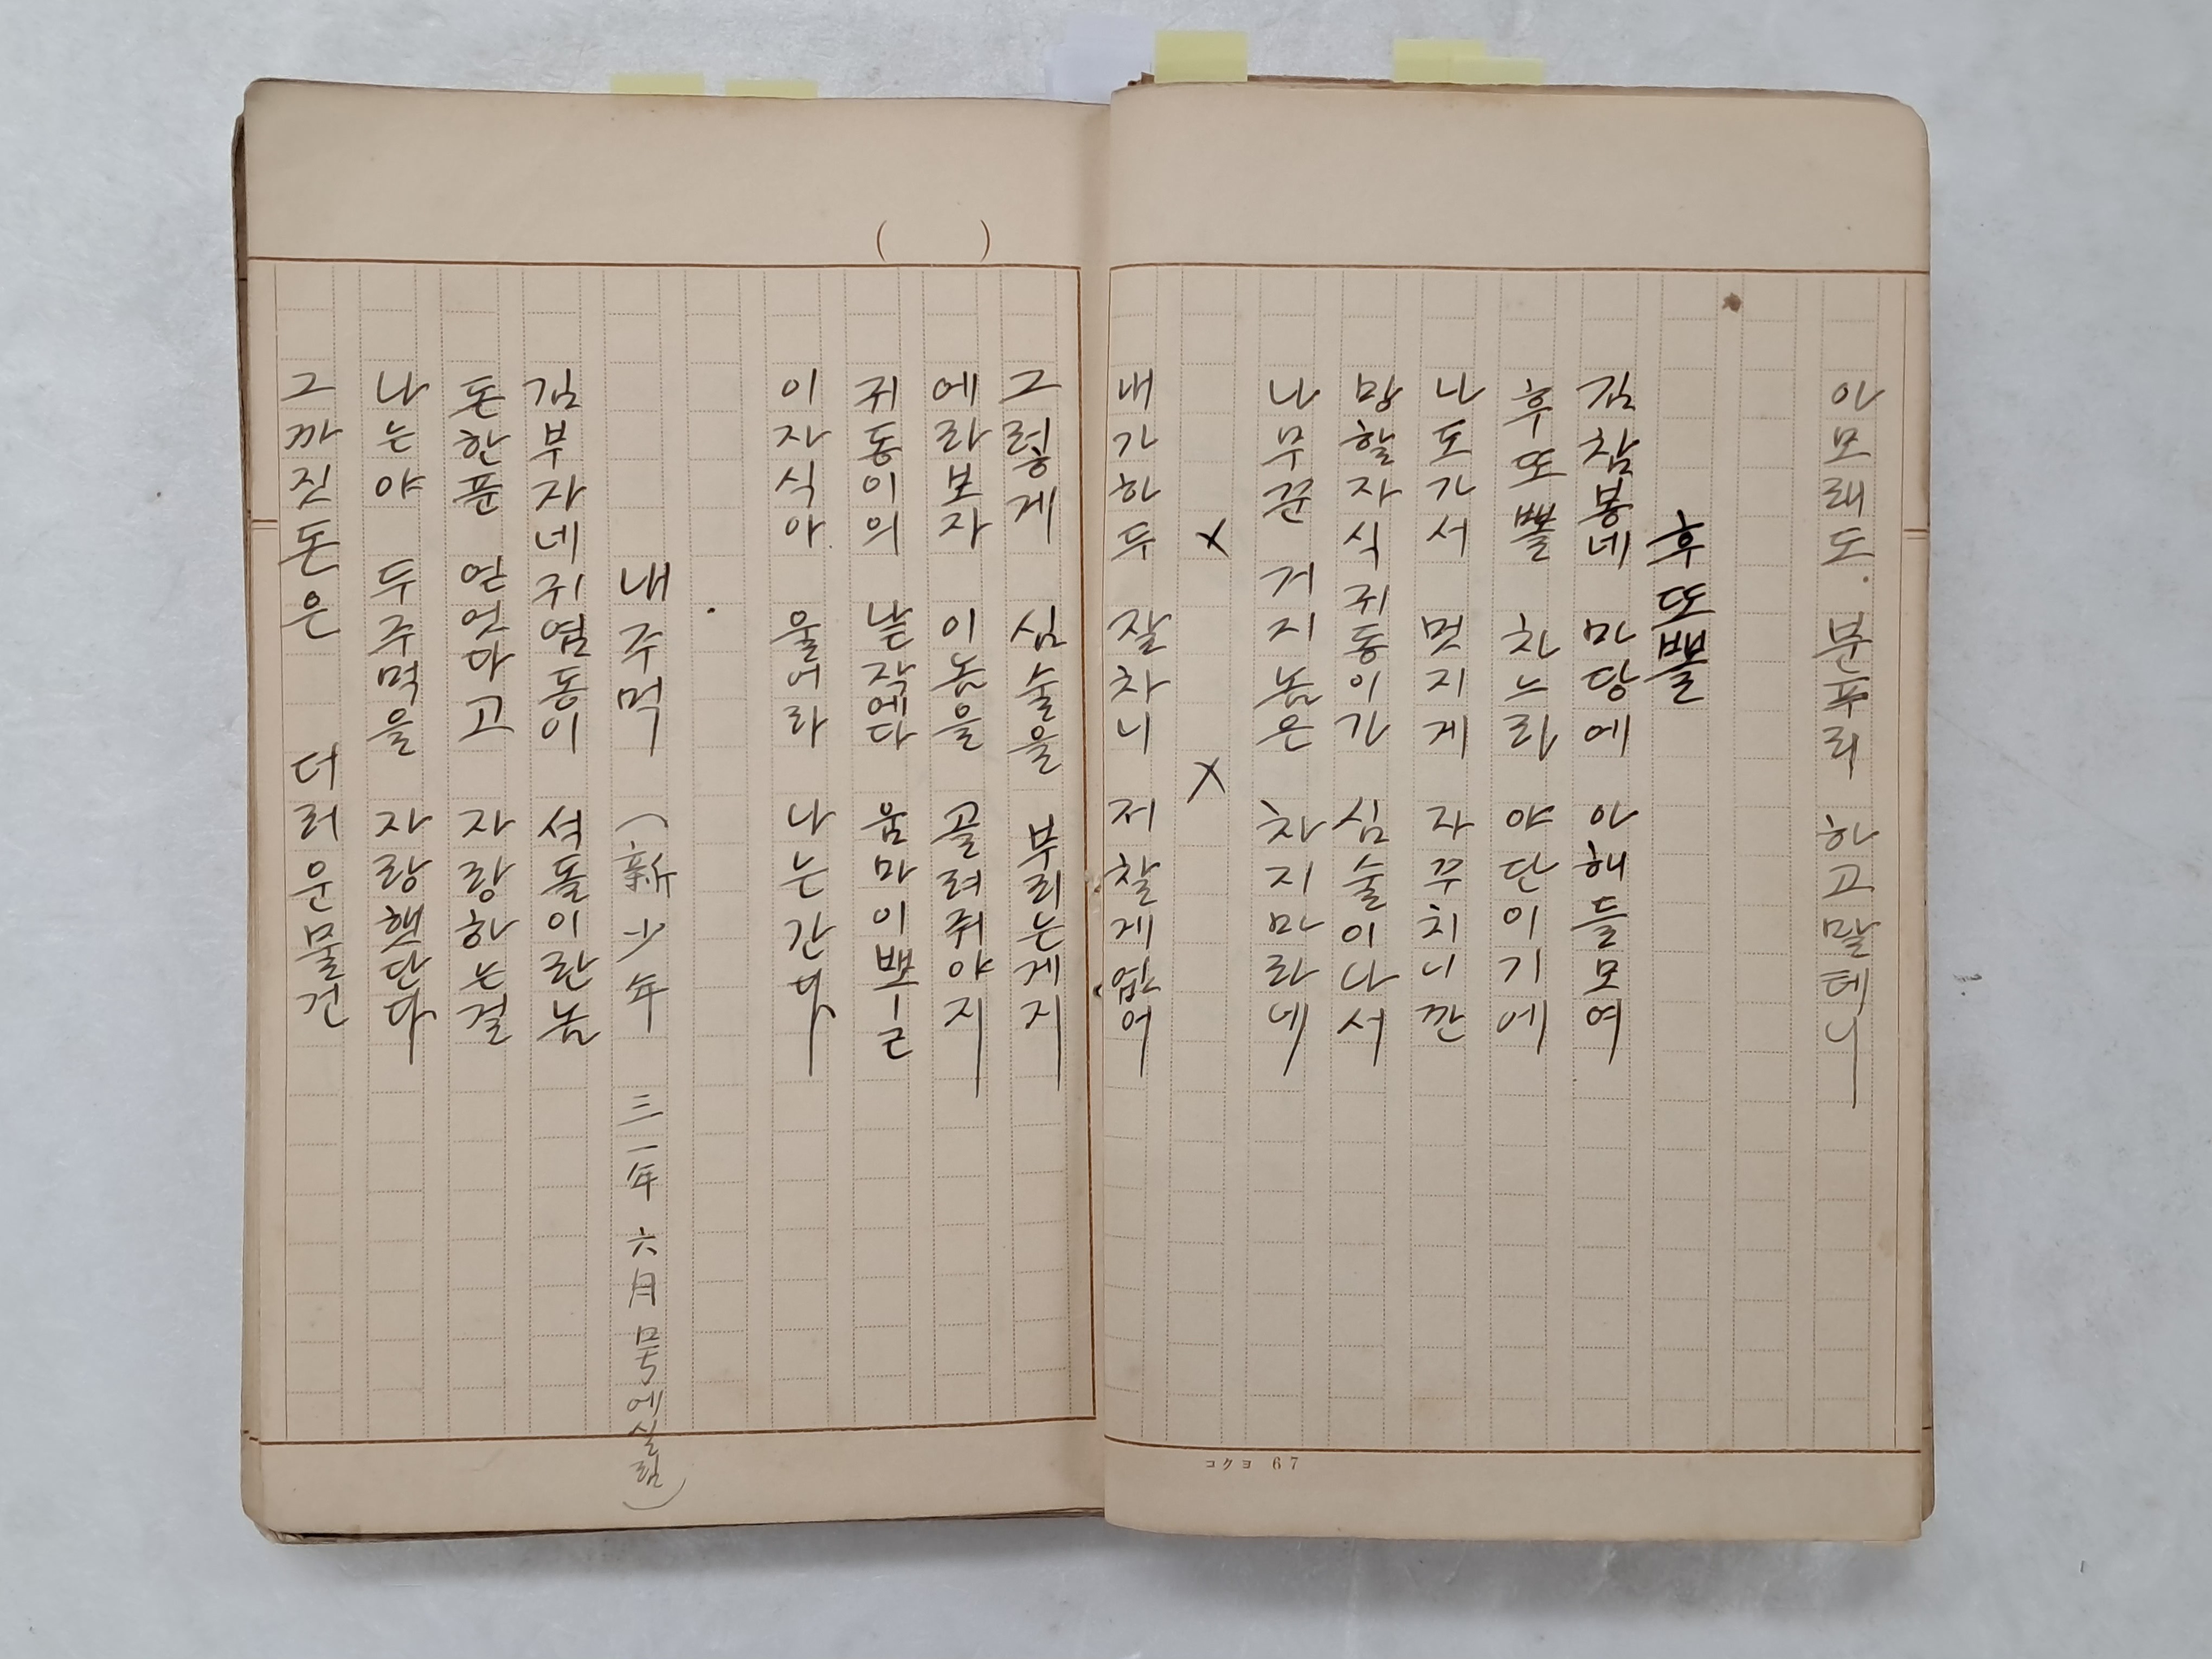 아모래도. 분푸리 하고말테니
후또뽈
김참봉네 마당에 아해들모여
후또뽈 찬느라 야단이기에
나도가서 멋지게 자꾸치니깐
망할자식쥐동이가 심술이나서
나무꾼 거지놈은 차지마라네
× ×
내가하두 잘차니 저찰게없어
コクヨ 67
( )
그렇게 심술을 부리는게지
에라보자 이놈을 골려줘야지
쥐동이의 낯작에다 움마이뽀ㅣ근
이자식아 울너라 나는간다
내주먹 (新少年 三一年 六月号에실림)
김부자네쥐염동이 석돌이란놈
돈한푼 얻엇다고 자랑하는걸
나는야 두주먹을 자랑햇단다
그까짓돈은 더러운물건